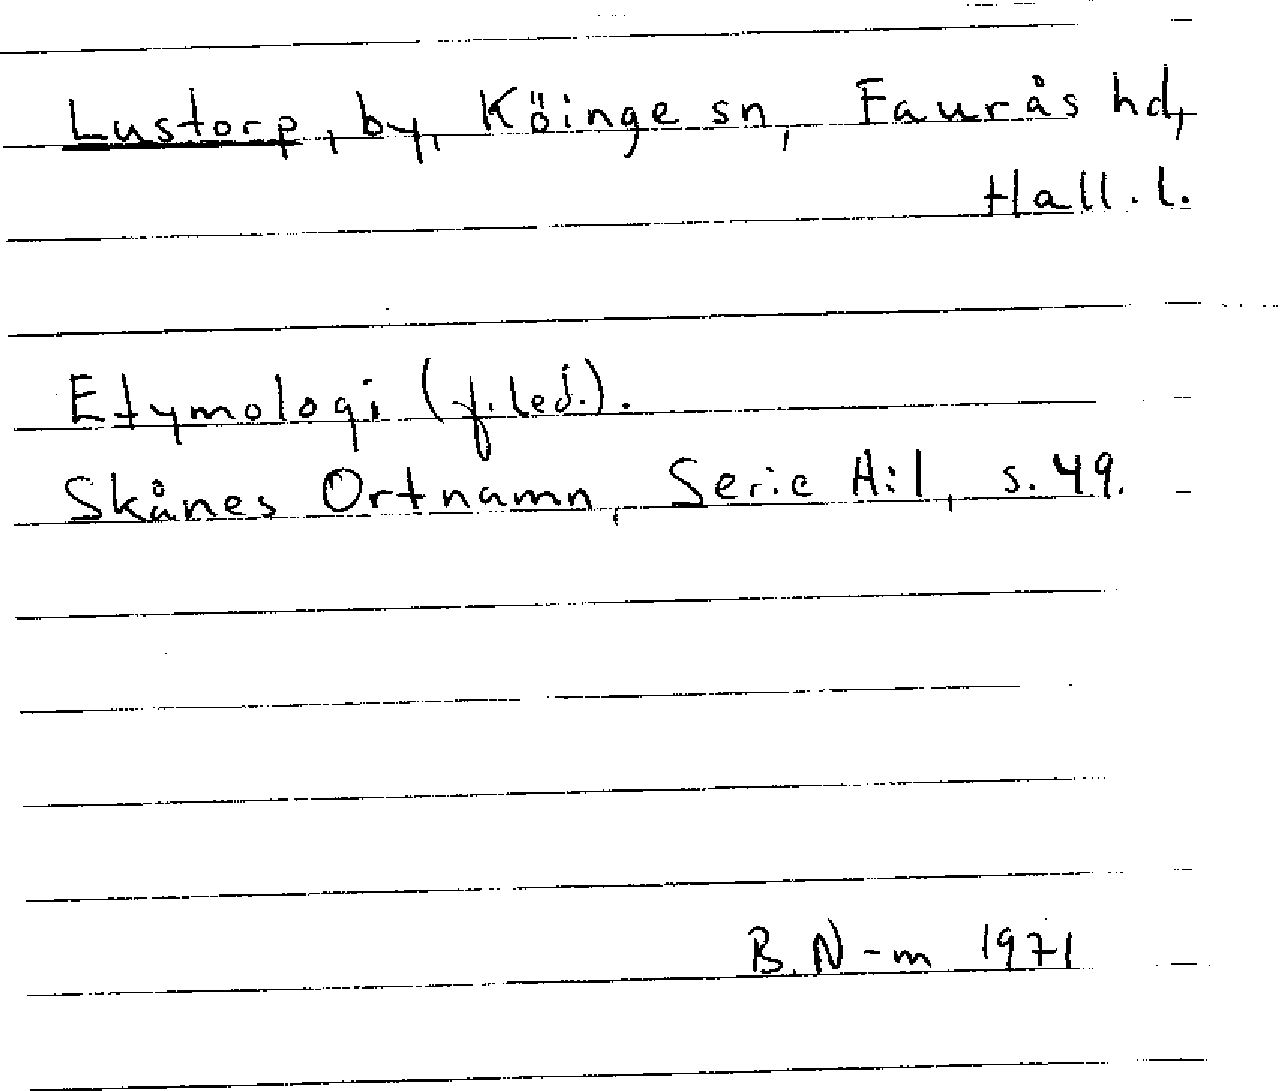 Lustorp, by, Köinge sn, Faurås hd,
Hall. l.
Etymologi (f.led.).
Skånes Ortnamn, Serie A:1, s. 49.
B. N-m 1971